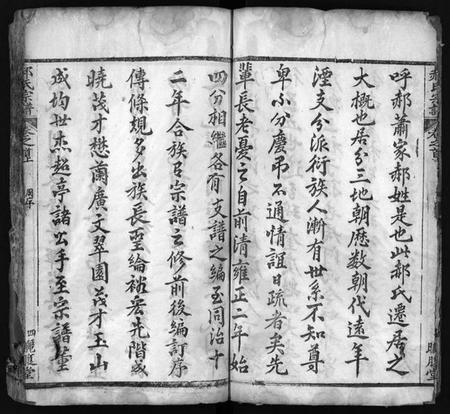 呼郝蕭家郝姓是也此郝氏遷居之
大概也居分三地朝歷數朝代遠年
湮支分派衍族人漸有世系不知尊
卑不分慶吊不通情誼日疏者矣先
輩長老憂之自前清雍正二年始
四分相繼各有支譜之編至同治十
二年合族巨宗譜之修前後編訂序
傳條規多出族長聖綸被宏先階成
曉茂才懋蘭廣文翠園茂才玉山
成均世杰超亭諸公手至宗譜董
郝氏宗譜
卷之首